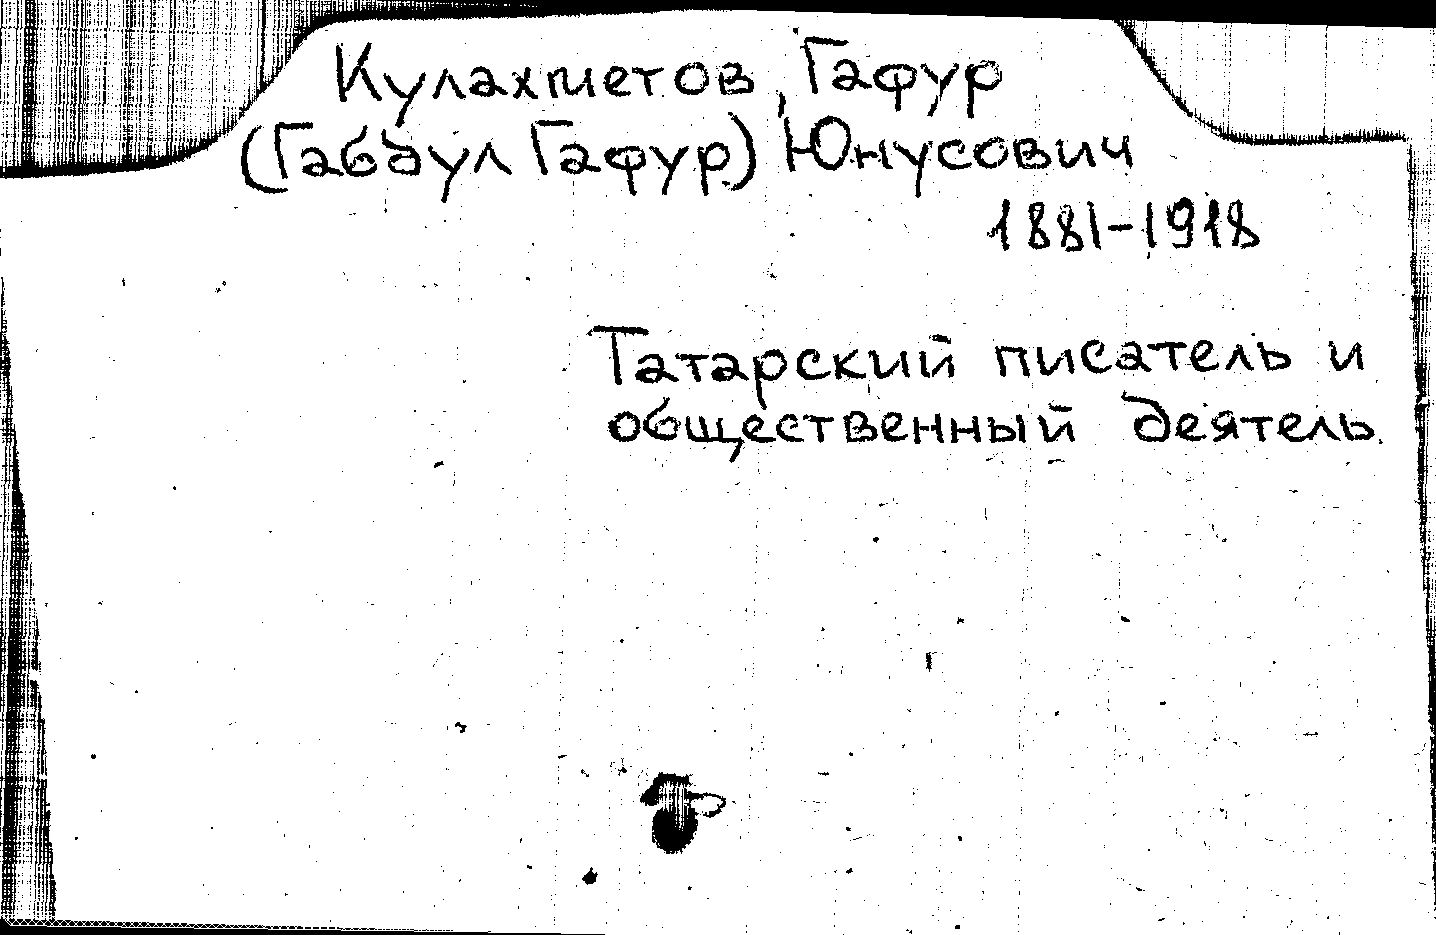 Кулахметов, Гафур
(Габдул Гафур) Юнусович
1881-1918
Татарский писатель и
общественный деятель.